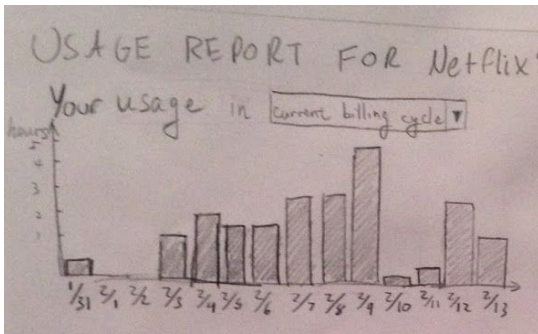 USAGE REPORT FOR Netflix
Your usage in current billing cycle ▼
hours
5
4
3
2
1
1/31 2/1 2/2 2/3 2/4 2/5 2/6 2/7 2/8 2/9 2/10 2/11 2/12 2/13